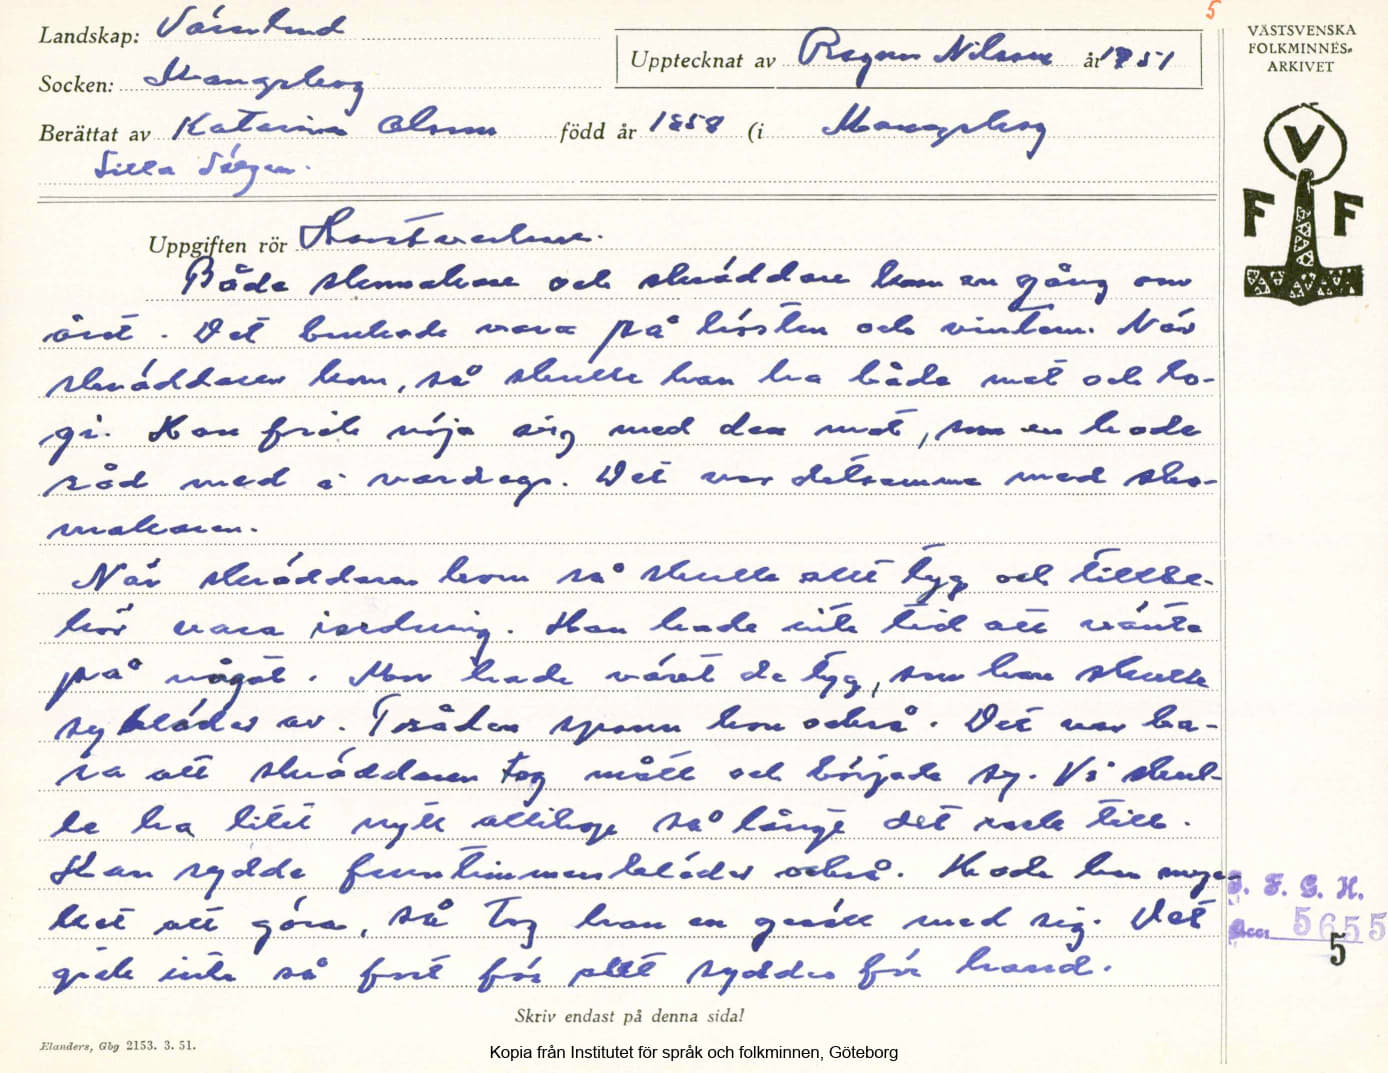 5
Landskap: Värmland
Socken: Mangskog
Upptecknat av Ragnar Nilsson år 1951
Berättat av Katarina Olsson född år 1858 (i Mangskog
Lilla Sälgen.
VÄSTSVENSKA
FOLKMINNES-
ARKIVET
V
F F
Uppgiften rör Hantverkare.
Både skomakare och skräddare kom en gång om
året. Det brukade vara på hösten och vintern. När
skräddaren kom, så skulle han ha både mat och lo-
gi. Han fick nöja sig med den mat, som en hade
råd med i vardags. Det var detsamma med sko-
makaren.
När skräddaren kom så skulle allt tyg och tillbe-
hör vara iordning. Han hade inte tid att vänta
på något. Mor hade vävt de tyg, som han skulle
sy kläder av. Tråden spann hon också. Det var ba-
ra att skräddaren tog mått och började sy. Vi skul-
le ha litet nytt allihop så långt det rack till.
Han sydde fruntimmerskläder också. Hade han myc-
ket att göra, så tog han en gesäll med sig. Det
gick inte så fort för allt syddes för hand.
I. F. G. H.
Acc. 5655
5
Skriv endast på denna sida!
Elanders, Gbg 2153. 3. 51.
Kopia från Institutet för språk och folkminnen, Göteborg